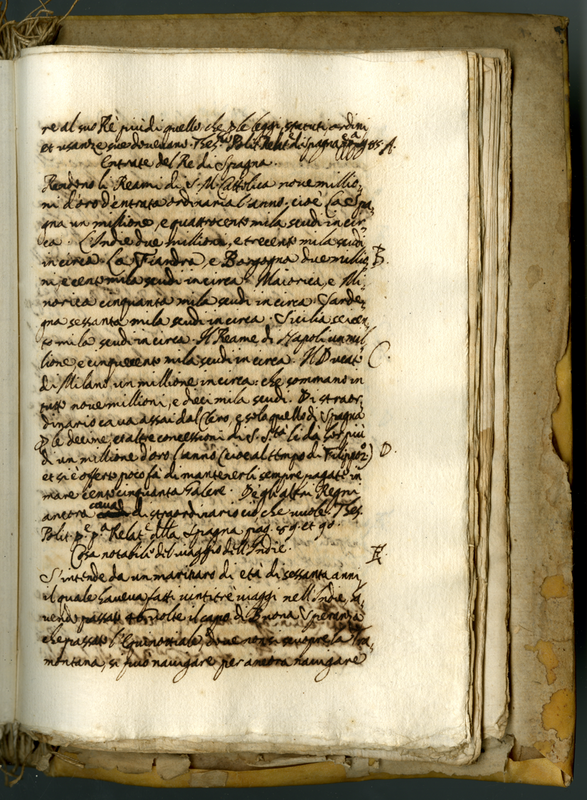 re al suo Rè piu di quello che p le leggi, statuti, ordini
et usanze sue doveano. Thes.º Polit. Relat.e di Spagna A.
Entrate del Re di Spagna.
Rendono li Reami di S. M. Cattolica nove millio
ni d'oro d'entrata ordinaria l'anno, cioè La Spa
gna un millione, e quattrocento mila scudi in cir
ca. L'Indie due millioni, e trecento mila scudi
in circa. La Fiandra, e Borgogna due millio B.
ni, e cento mila scudi in circa. Maiorica, e Mi
norica cinquanta mila scudi in circa. Sarde
gna sessanta mila scudi in circa. Sicilia seicen
to mila scudi in circa. Il Reame di Napoli un mil
lione, e cinquecento mila scudi in circa. Il Ducato C.
di Milano un millione in circa: che sommano in
tutto nove millioni, e dieci mila scudi. Di straor
dinario cava assai dal Clero, e solo quello di Spagna
p le decime, et altre concessioni di S. S.tà li da hor piu
di un millione d'oro l'anno (cioe al tempo di Filippo 2.º) D.
et si è offerto poco fà di mantenerli sempre pagati in
mare cento cinquanta Galere. Degli altri Regni
ancora cava di straordinario ciò che vuole. Thes.
Polit. p.e p.a Relat.e della Spagna pag. 89. et 90.
Cosa notabile del viaggio dell'Indie. E.
S'intende da un marinaro di età di sessanta anni,
il quale haveva fatti vintitre viaggi nell'Indie, ha
vendo passato volte il capo di Buona Speranza
che passato l'Equinottiale, dove non si scuopre la Tra
montana, si può navigare per ancora navigare